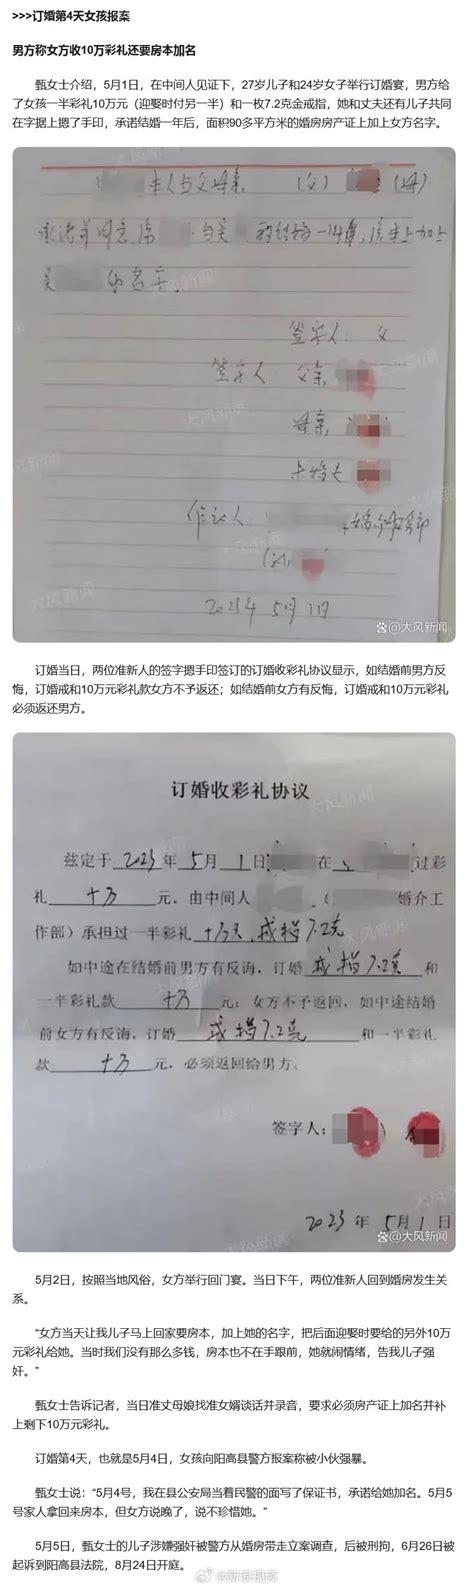 >>>订婚第4天女孩报案
男方称女方收10万彩礼还要房本加名
甄女士介绍，5月1日，在中间人见证下，27岁儿子和24岁女子举行订婚宴，男方给
了女孩一半彩礼10万元（迎娶时付另一半）和一枚7.2克金戒指，她和丈夫还有儿子共同
在字据上摁了手印，承诺结婚一年后，面积90多平方米的婚房房产证上加上女方名字。
本人与父母亲 （父） （母）
签字人 父
签字人 父亲
母亲
2023年5月1日
@大风新闻
订婚当日，两位准新人的签字摁手印签订的订婚收彩礼协议显示，如结婚前男方反
悔，订婚戒和10万元彩礼款女方不予返还；如结婚前女方有反悔，订婚戒和10万元彩礼
必须返还男方。
订婚收彩礼协议
兹定于2023年5月1日 在 过彩
礼 十万 元，由中间人 婚介工
作部）承担过一半彩礼 十万元，戒指7.2克
如中途在结婚前男方有反诲，订婚 戒指7.2克 和
一半彩礼款 十万 元；女方不予返回，如中途结婚
前女方有反诲，订婚 戒指7.2克 和一半彩礼
款 十万 元，必须返回给男方。
签字人：
2023年5月1日
@大风新闻
5月2日，按照当地风俗，女方举行回门宴。当日下午，两位准新人回到婚房发生关
系。
“女方当天让我儿子马上回家要房本，加上她的名字，把后面迎娶时要给的另外10万
元彩礼给她。当时我们没有那么多钱，房本也不在手跟前，她就闹情绪，告我儿子强
奸。”
甄女士告诉记者，当日准丈母娘找准女婿谈话并录音，要求必须房产证上加名并补
上剩下10万元彩礼。
订婚第4天，也就是5月4日，女孩向阳高县警方报案称被小伙强暴。
甄女士说：“5月4号，我在县公安局当着民警的面写了保证书，承诺给她加名。5月5
号家人拿回来房本，但女方说晚了，说不珍惜她。”
5月5日，甄女士的儿子涉嫌强奸被警方从婚房带走立案调查，后被刑拘，6月26日被
起诉到阳高县法院，8月24日开庭。
@新浪视频